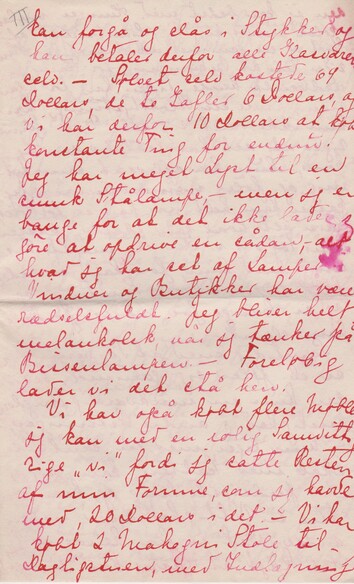 III
kan forgå og slås i Stykker og
han betaler derfor alle Glasvarer
selv. – Sølvet selv kostede 64
Dollars, de to Tafler 6 Dollars, og
vi har derfor 10 Dollars at købe
konstante Ting for endnu.
Jeg har meget Lyst til en
smuk Stålampe, – men jeg er
bange for at det ikke lader sig
göre at opdrive en sådan, – alt
hvad jeg har set af Lamper i
Vinduer og Butikker har været
rædselsfuldt. Jeg bliver helt
melankolsk, når jeg tænker på
Bissenlampen. – Foreløbig
lader vi det stå hen.
Vi har også købt flere Møbler
jeg kan med en rolig Samvittig
sige „vi" fordi jeg satte Resten
af min Formue, som jeg havde
med, 20 Dollars i det – Vi har
købt 2 Mahogni Stole til
Dagligstuen, med Indlægning